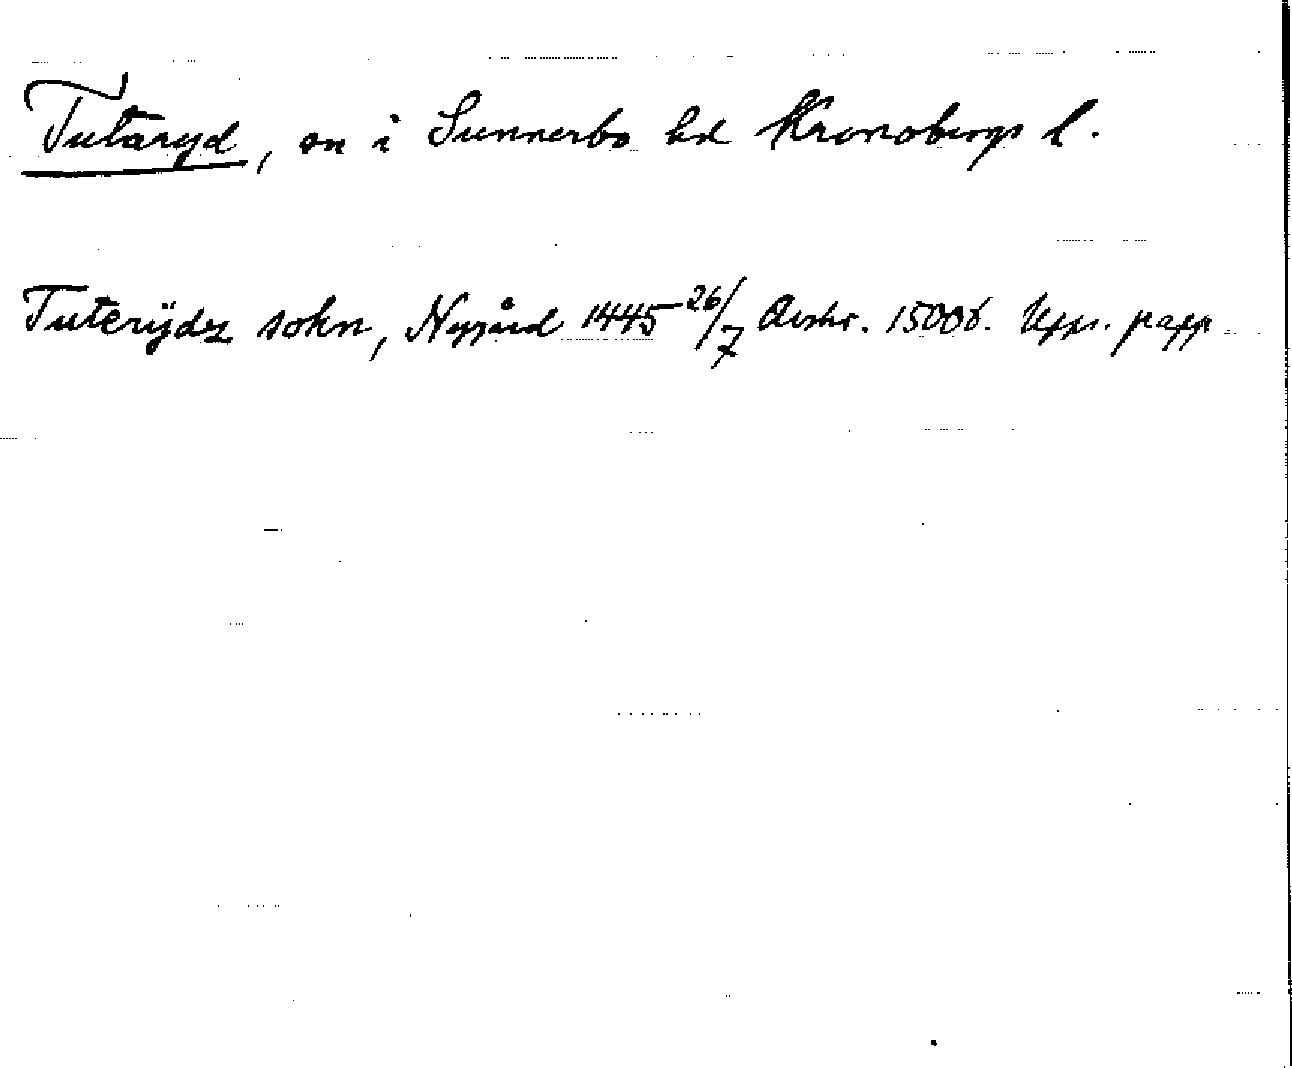 Tutaryd, sn i Sunnerbo hd Kronobergs l.
Tuterÿdz sokn, Nygård 1445 26/7 Avskr. 1500b. Upps. papp